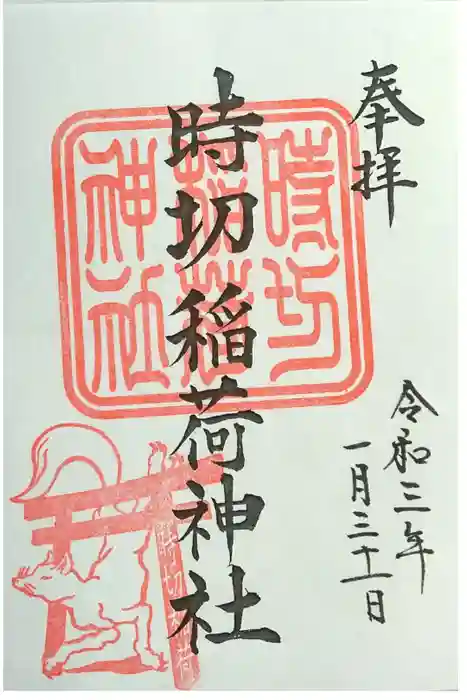 奉拝
令和三年
一月三十一日
時切稲荷神社
時切
稲荷
神社
時切稲荷